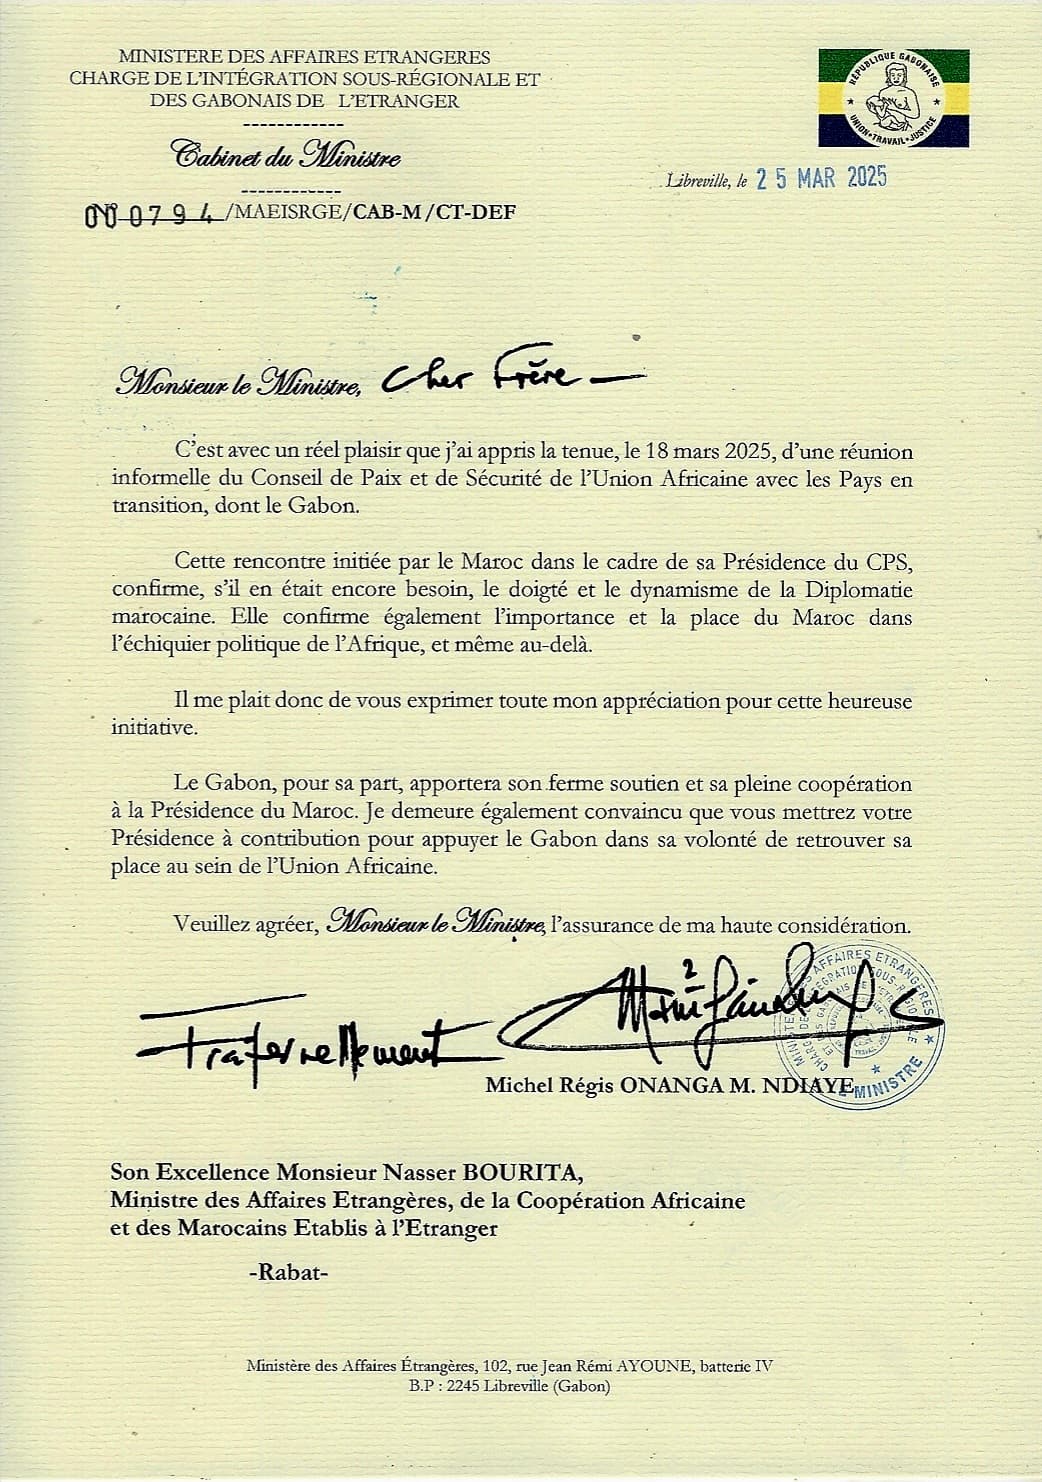 MINISTERE DES AFFAIRES ETRANGERES
CHARGE DE L'INTÉGRATION SOUS-RÉGIONALE ET
DES GABONAIS DE L'ETRANGER
------------
Cabinet du Ministre
------------
N° 000794/MAEISRGE/CAB-M/CT-DEF
RÉPUBLIQUE GABONAISE
UNION • TRAVAIL • JUSTICE
Libreville, le 25 MAR 2025
Monsieur le Ministre, Cher Frère —
C'est avec un réel plaisir que j'ai appris la tenue, le 18 mars 2025, d'une réunion
informelle du Conseil de Paix et de Sécurité de l'Union Africaine avec les Pays en
transition, dont le Gabon.
Cette rencontre initiée par le Maroc dans le cadre de sa Présidence du CPS,
confirme, s'il en était encore besoin, le doigté et le dynamisme de la Diplomatie
marocaine. Elle confirme également l'importance et la place du Maroc dans
l'échiquier politique de l'Afrique, et même au-delà.
Il me plait donc de vous exprimer toute mon appréciation pour cette heureuse
initiative.
Le Gabon, pour sa part, apportera son ferme soutien et sa pleine coopération
à la Présidence du Maroc. Je demeure également convaincu que vous mettrez votre
Présidence à contribution pour appuyer le Gabon dans sa volonté de retrouver sa
place au sein de l'Union Africaine.
Veuillez agréer, Monsieur le Ministre, l'assurance de ma haute considération.
Fraternellement
MINISTERE DES AFFAIRES ETRANGERES
LE MINISTRE
Michel Régis ONANGA M. NDIAYE
Son Excellence Monsieur Nasser BOURITA,
Ministre des Affaires Etrangères, de la Coopération Africaine
et des Marocains Etablis à l'Etranger
-Rabat-
Ministère des Affaires Étrangères, 102, rue Jean Rémi AYOUNE, batterie IV
B.P : 2245 Libreville (Gabon)